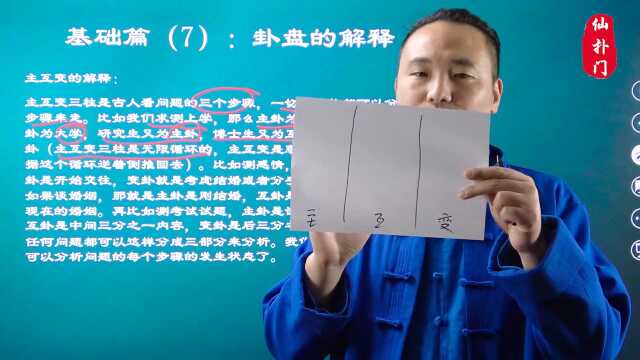 基础篇（7）：卦盘的解释
仙朴门
主互变的解释：
主互变三柱是古人看问题的三个步骤，一切
步骤来走。比如我们求测上学，那么主卦为
卦为大学，研究生又为主卦，博士生又为互
卦（主互变三柱是无限循环的，主互变是
据这个循环逆着倒推回去）。比如测感情，
卦是开始交往，变卦就是考虑结婚或者分
如果谈婚姻，那就是主卦是刚结婚，互卦
现在的婚姻。再比如测考试试题，主卦是
互卦是中间三分之一内容，变卦是后三分
任何问题都可以这样分成三部分来分析。我
可以分析问题的每个步骤的发生状态了。
主 互 变